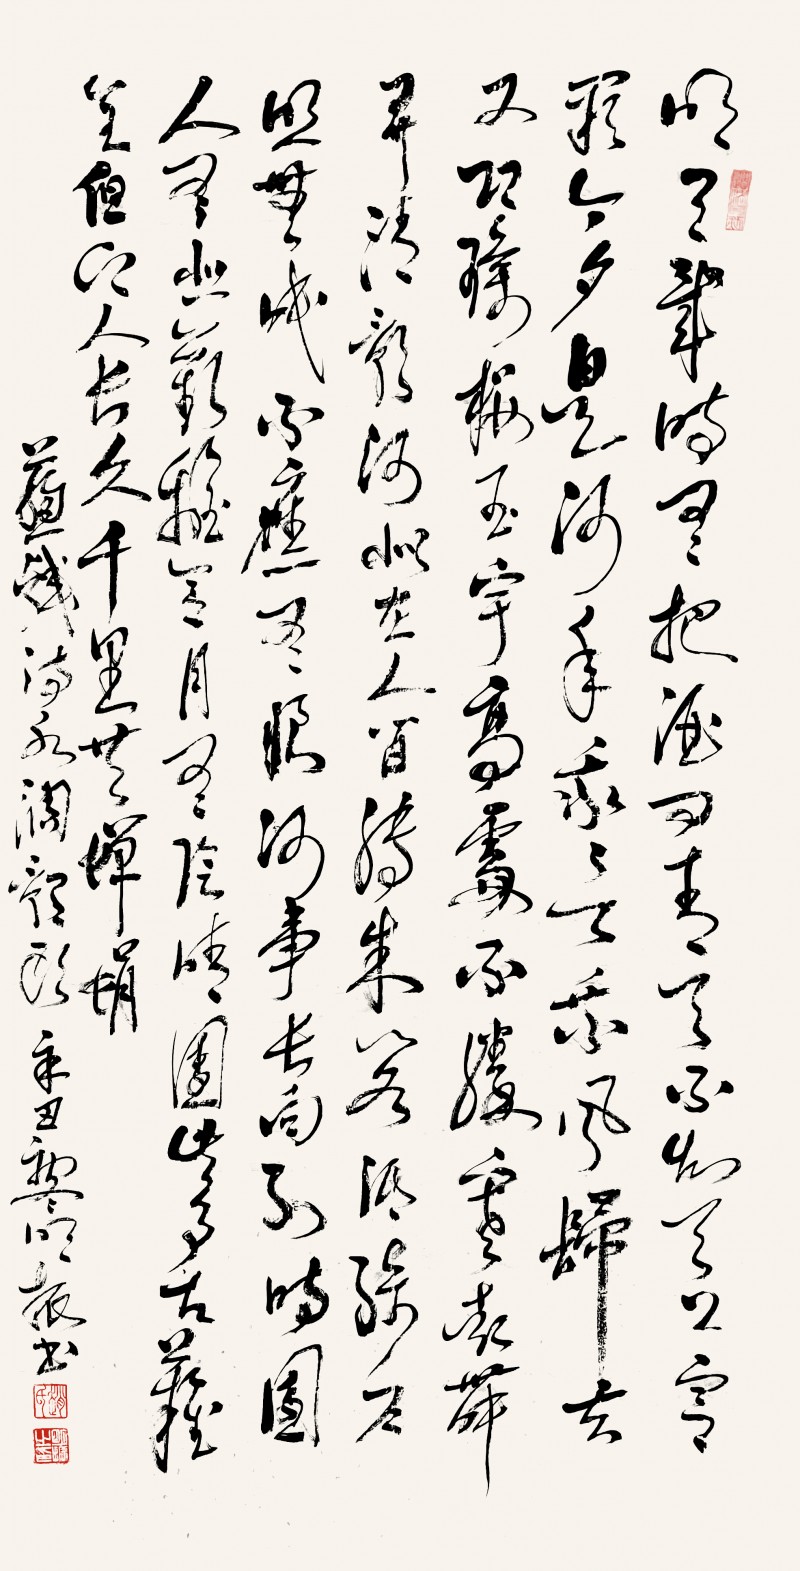 明月幾時有把酒問青天不知天上宮
闕今夕是何年我欲乘風歸去
又恐瓊樓玉宇高處不勝寒起舞
弄清影何似在人間轉朱閣低綺戶
照無眠不應有恨何事長向別時圓
人有悲歡離合月有陰晴圓此事古難
全但願人長久千里共嬋娟
蘇軾詩水調歌頭 辛丑明振書